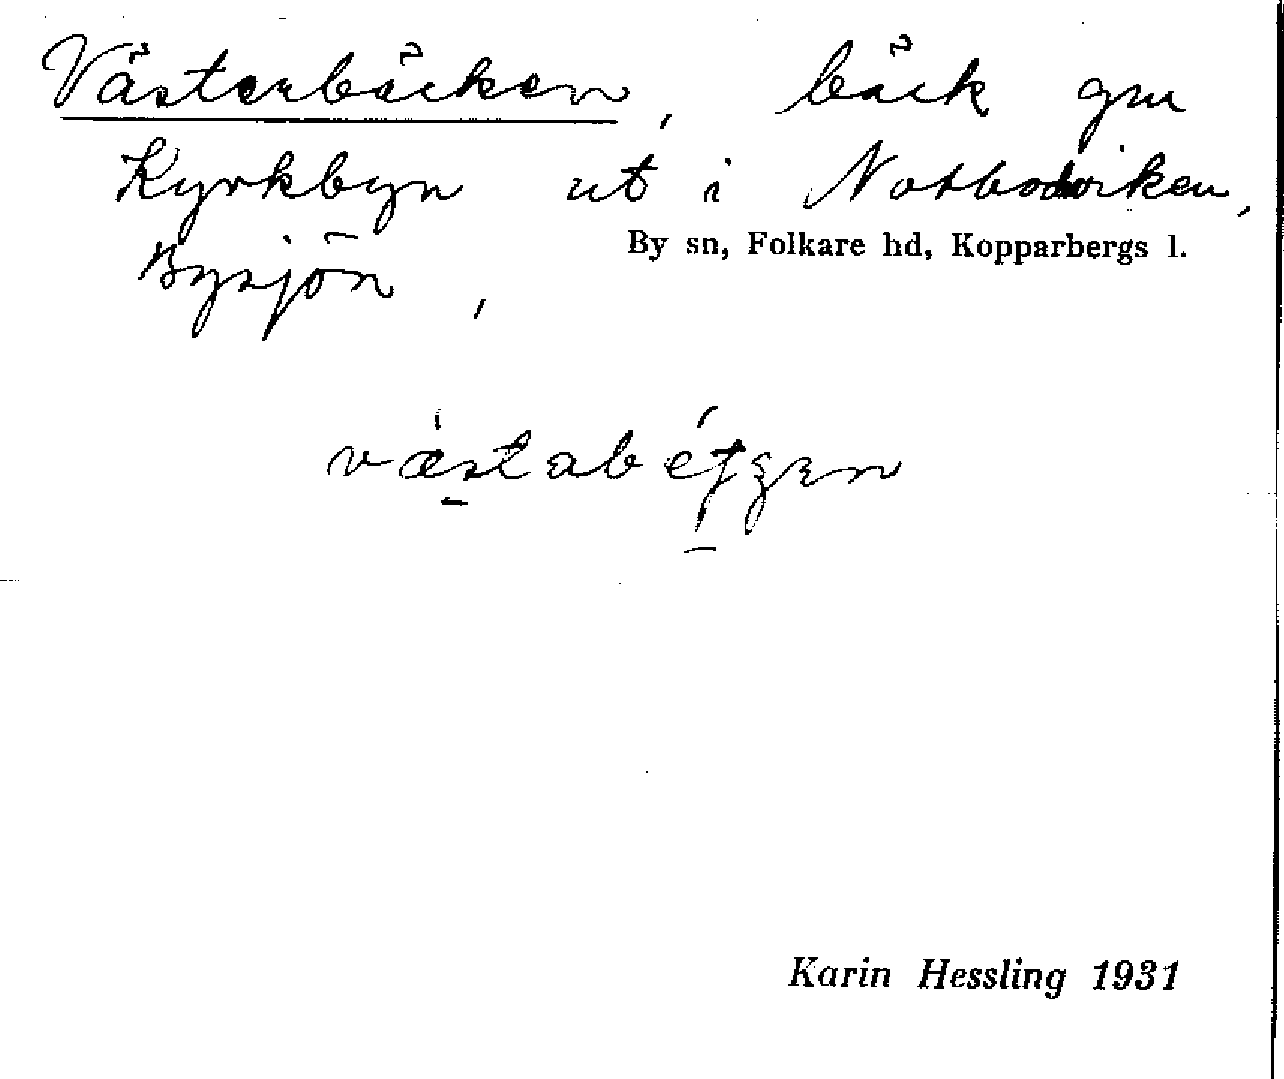 Västerbäcken, bäck gm
Kyrkbyn ut i Notbodviken,
By sn, Folkare hd, Kopparbergs l.
Bysjön,
Karin Hessling 1931